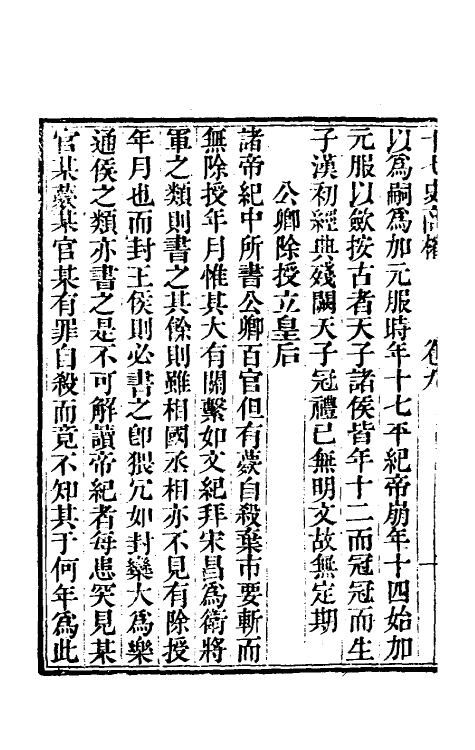 十七史商榷 卷九 一
以為嗣為加元服時年十七平紀帝崩年十四始加
元服以斂按古者天子諸侯皆年十二而冠冠而生
子漢初經典殘闕天子冠禮已無明文故無定期
公卿除授立皇后
諸帝紀中所書公卿百官但有薨自殺棄市要斬而
無除授年月惟其大有關繫如文紀拜宋昌為衛將
軍之類則書之其餘則雖相國丞相亦不見有除授
年月也而封王侯則必書之卽猥冗如封欒大為樂
通侯之類亦書之是不可解讀帝紀者每患突見某
官某薨某官某有罪自殺而竟不知其于何年為此